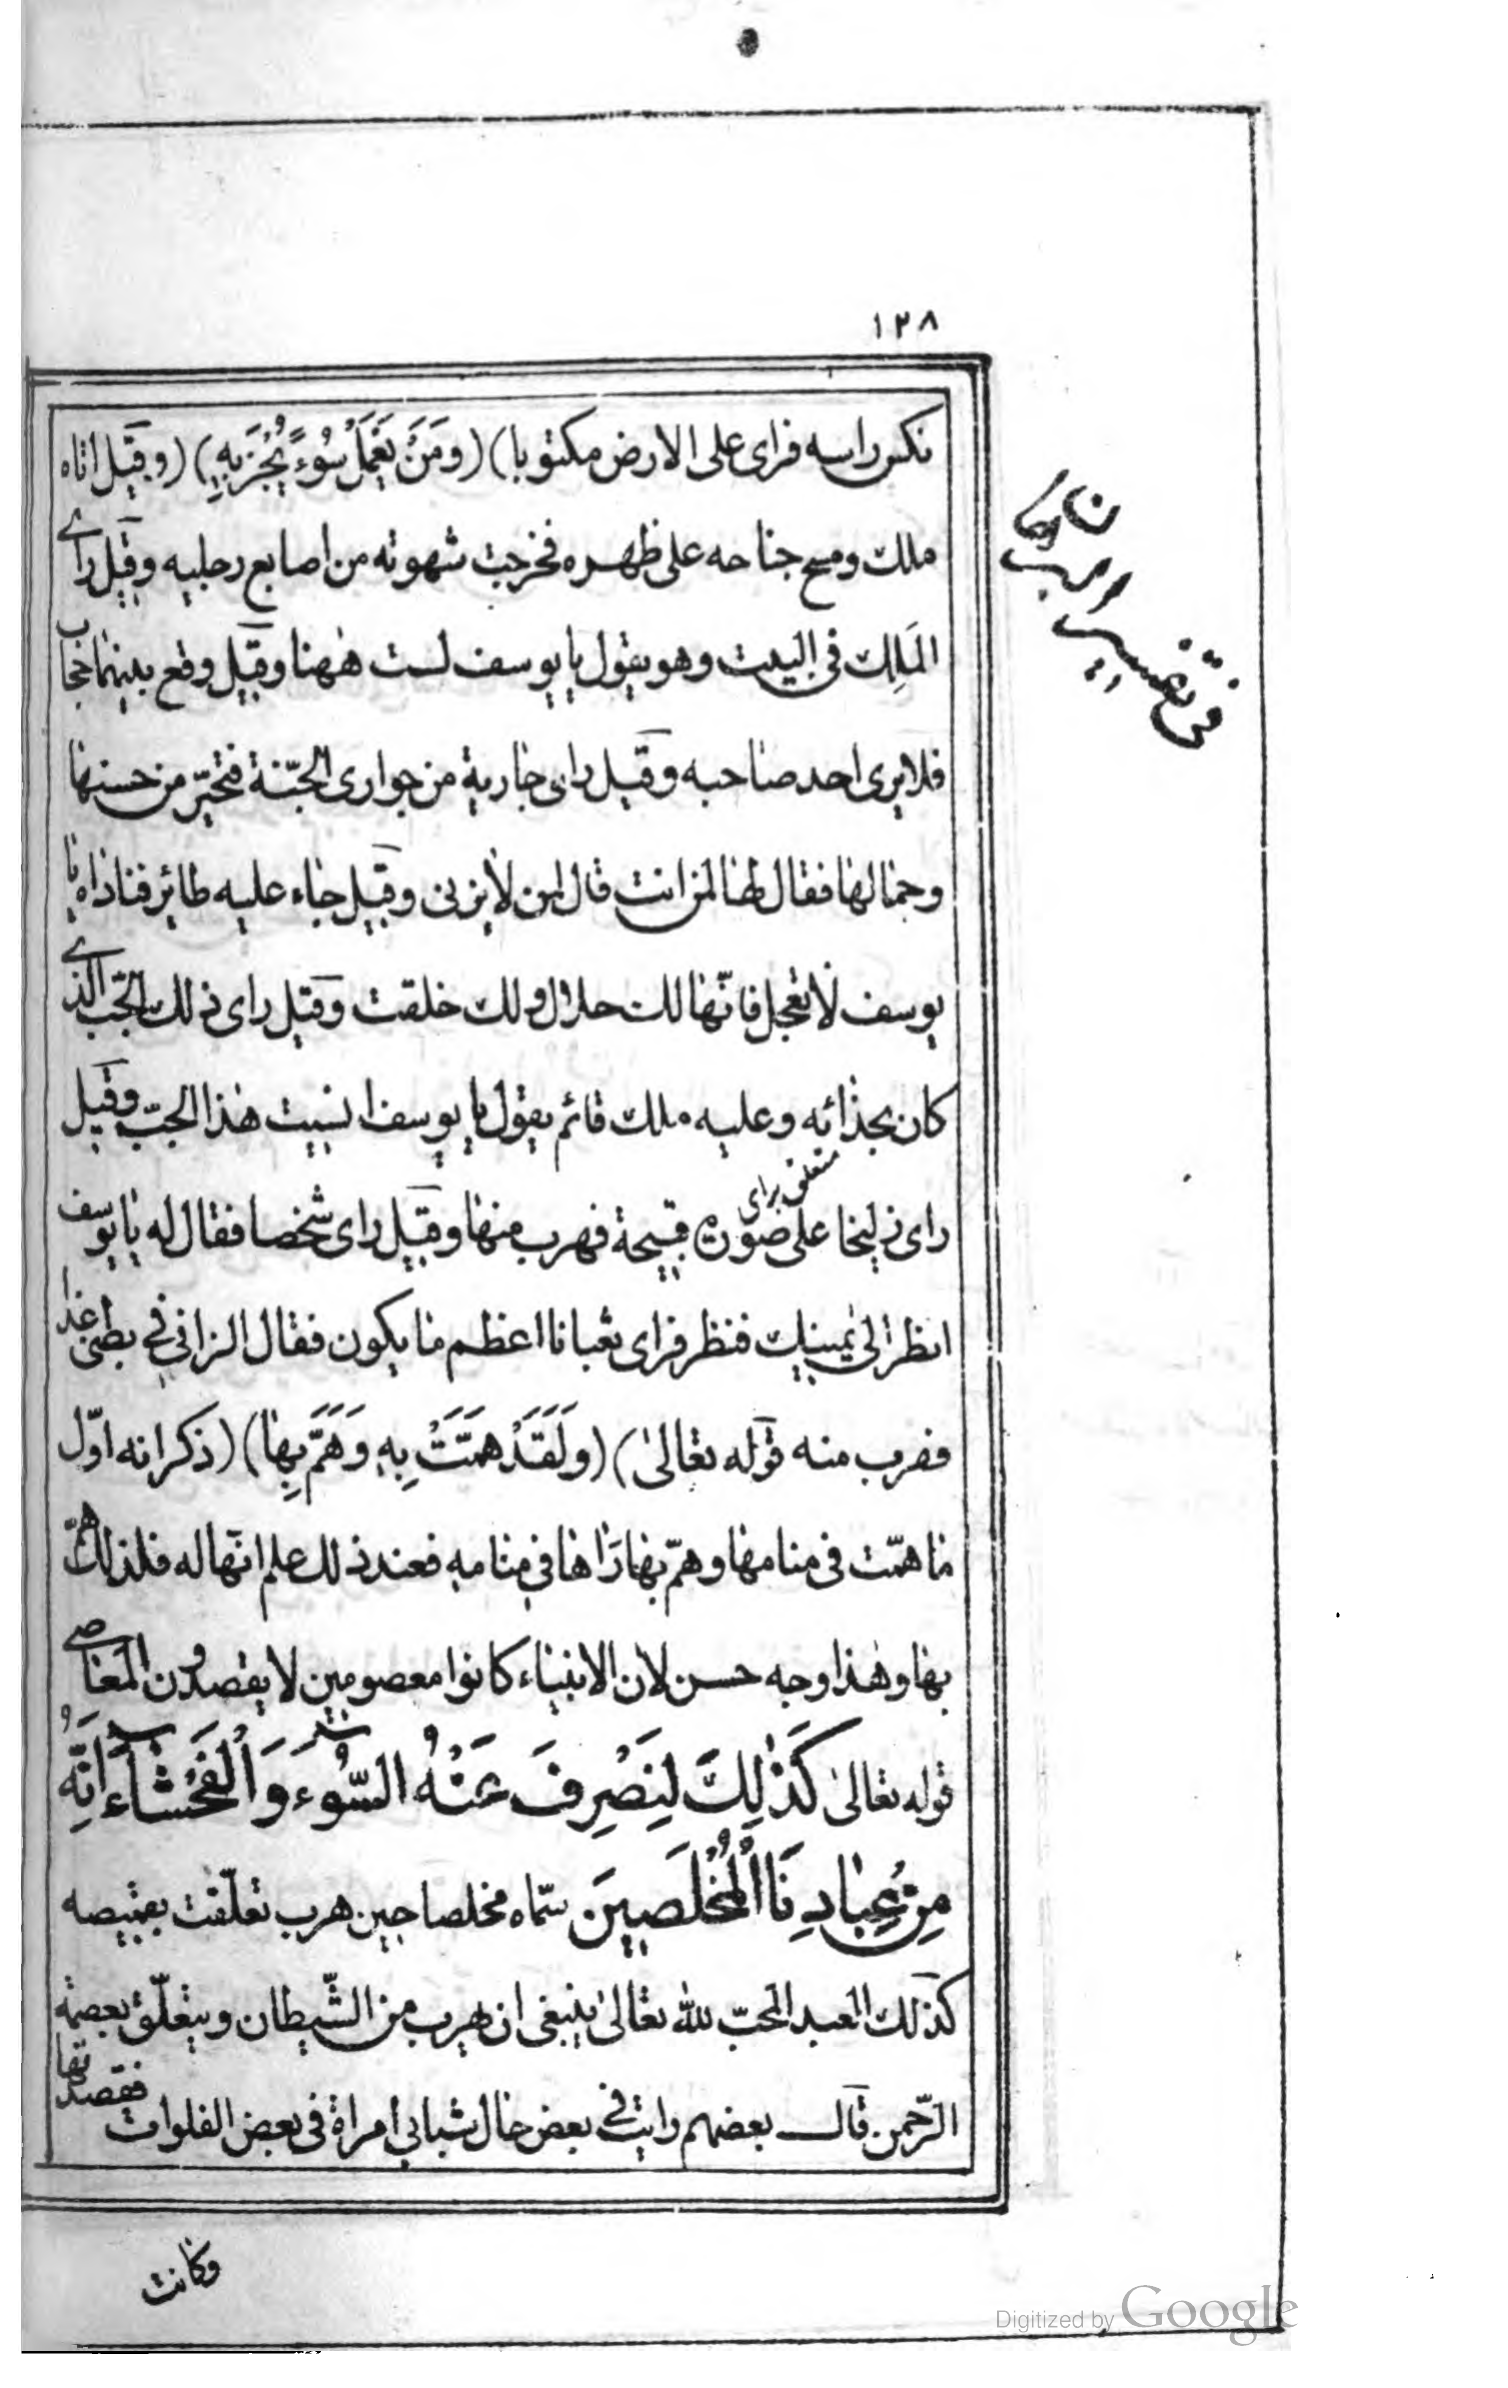 ١٣٨
نكس راسه فراى على الارض مكتوبا) (وَمَنْ يَعْمَلْ سُوءً يُجْزَ بِهِ) (وقيل اتاه
ملك ومسح جناحه على ظهره فخرجت شهوته من اصابع رجليه وقيل راى
المَلِك فى البيت وهو يقول يا يوسف لست ههنا وقيل وقع بينهما حجاب
فلا يرى احد صاحبه وقيل راى جارية من جوارى الجنّة فتحيّر من حسنها
وجمالها فقال لها لمن انت قال لمن لا يزنى وقيل جاء عليه طائر فناداه يا
يوسف لا تعجل فانّها لك حلال ولك خلقت وقيل راى ذلك الجبّ الذى
كان بحذائه وعليه ملك قائم يقول يا يوسف انسيت هذا الجبّ وقيل
متعلق براى
راى زليخا على صورة قبيحة فهرب منها وقيل راى شخصا فقال له يا يوسف
انظر الى يمينك فنظر فراى ثعبانا اعظم ما يكون فقال الزانى فى بطنى غدا
فهرب منه قوله تعالىٰ) (وَلَقَدْ هَمَّتْ بِهِ وَهَمَّ بِهَا) (ذكر انه اوّل
ما همّت فى منامها وهمّ بها رَاها فى منامه فعند ذلك علم انّها له فلذلك همّ
بها وهذا وجه حسن لان الانبياء كانوا معصومين لا يقصدون المعاصى
قوله تعالىٰ كَذٰلِكَ لِنَصْرِفَ عَنْهُ السُّوءَ وَالْفَحْشَاءَ اِنَّهُ
مِنْ عِبَادِنَا الْمُخْلَصِينَ سمّاه مخلصا حين هرب تعلّقت بقميصه
كذلك العبد المحبّ لله تعالىٰ ينبغى ان يهرب من الشّيطان ويتعلّق بعصمة
الرّحمن قال بعضهم رايت فى بعض حال شبابى امراة فى بعض الفلوات فقصدتها
وكانت
Digitized by Google